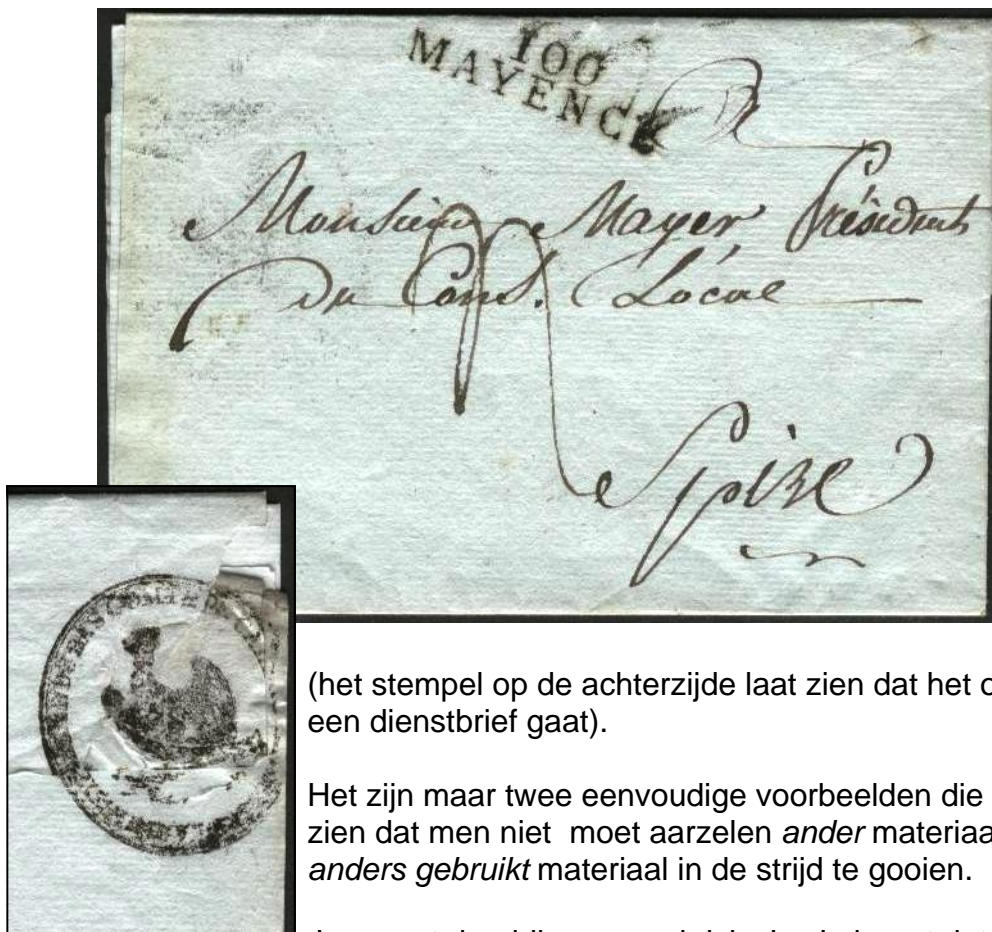 100
MAYENCE
Monsieur Mayer Président
Du Cons. Local
Spire
(het stempel op de achterzijde laat zien dat het o
een dienstbrief gaat).
Het zijn maar twee eenvoudige voorbeelden die
zien dat men niet moet aarzelen ander materiaa
anders gebruikt materiaal in de strijd te gooien.